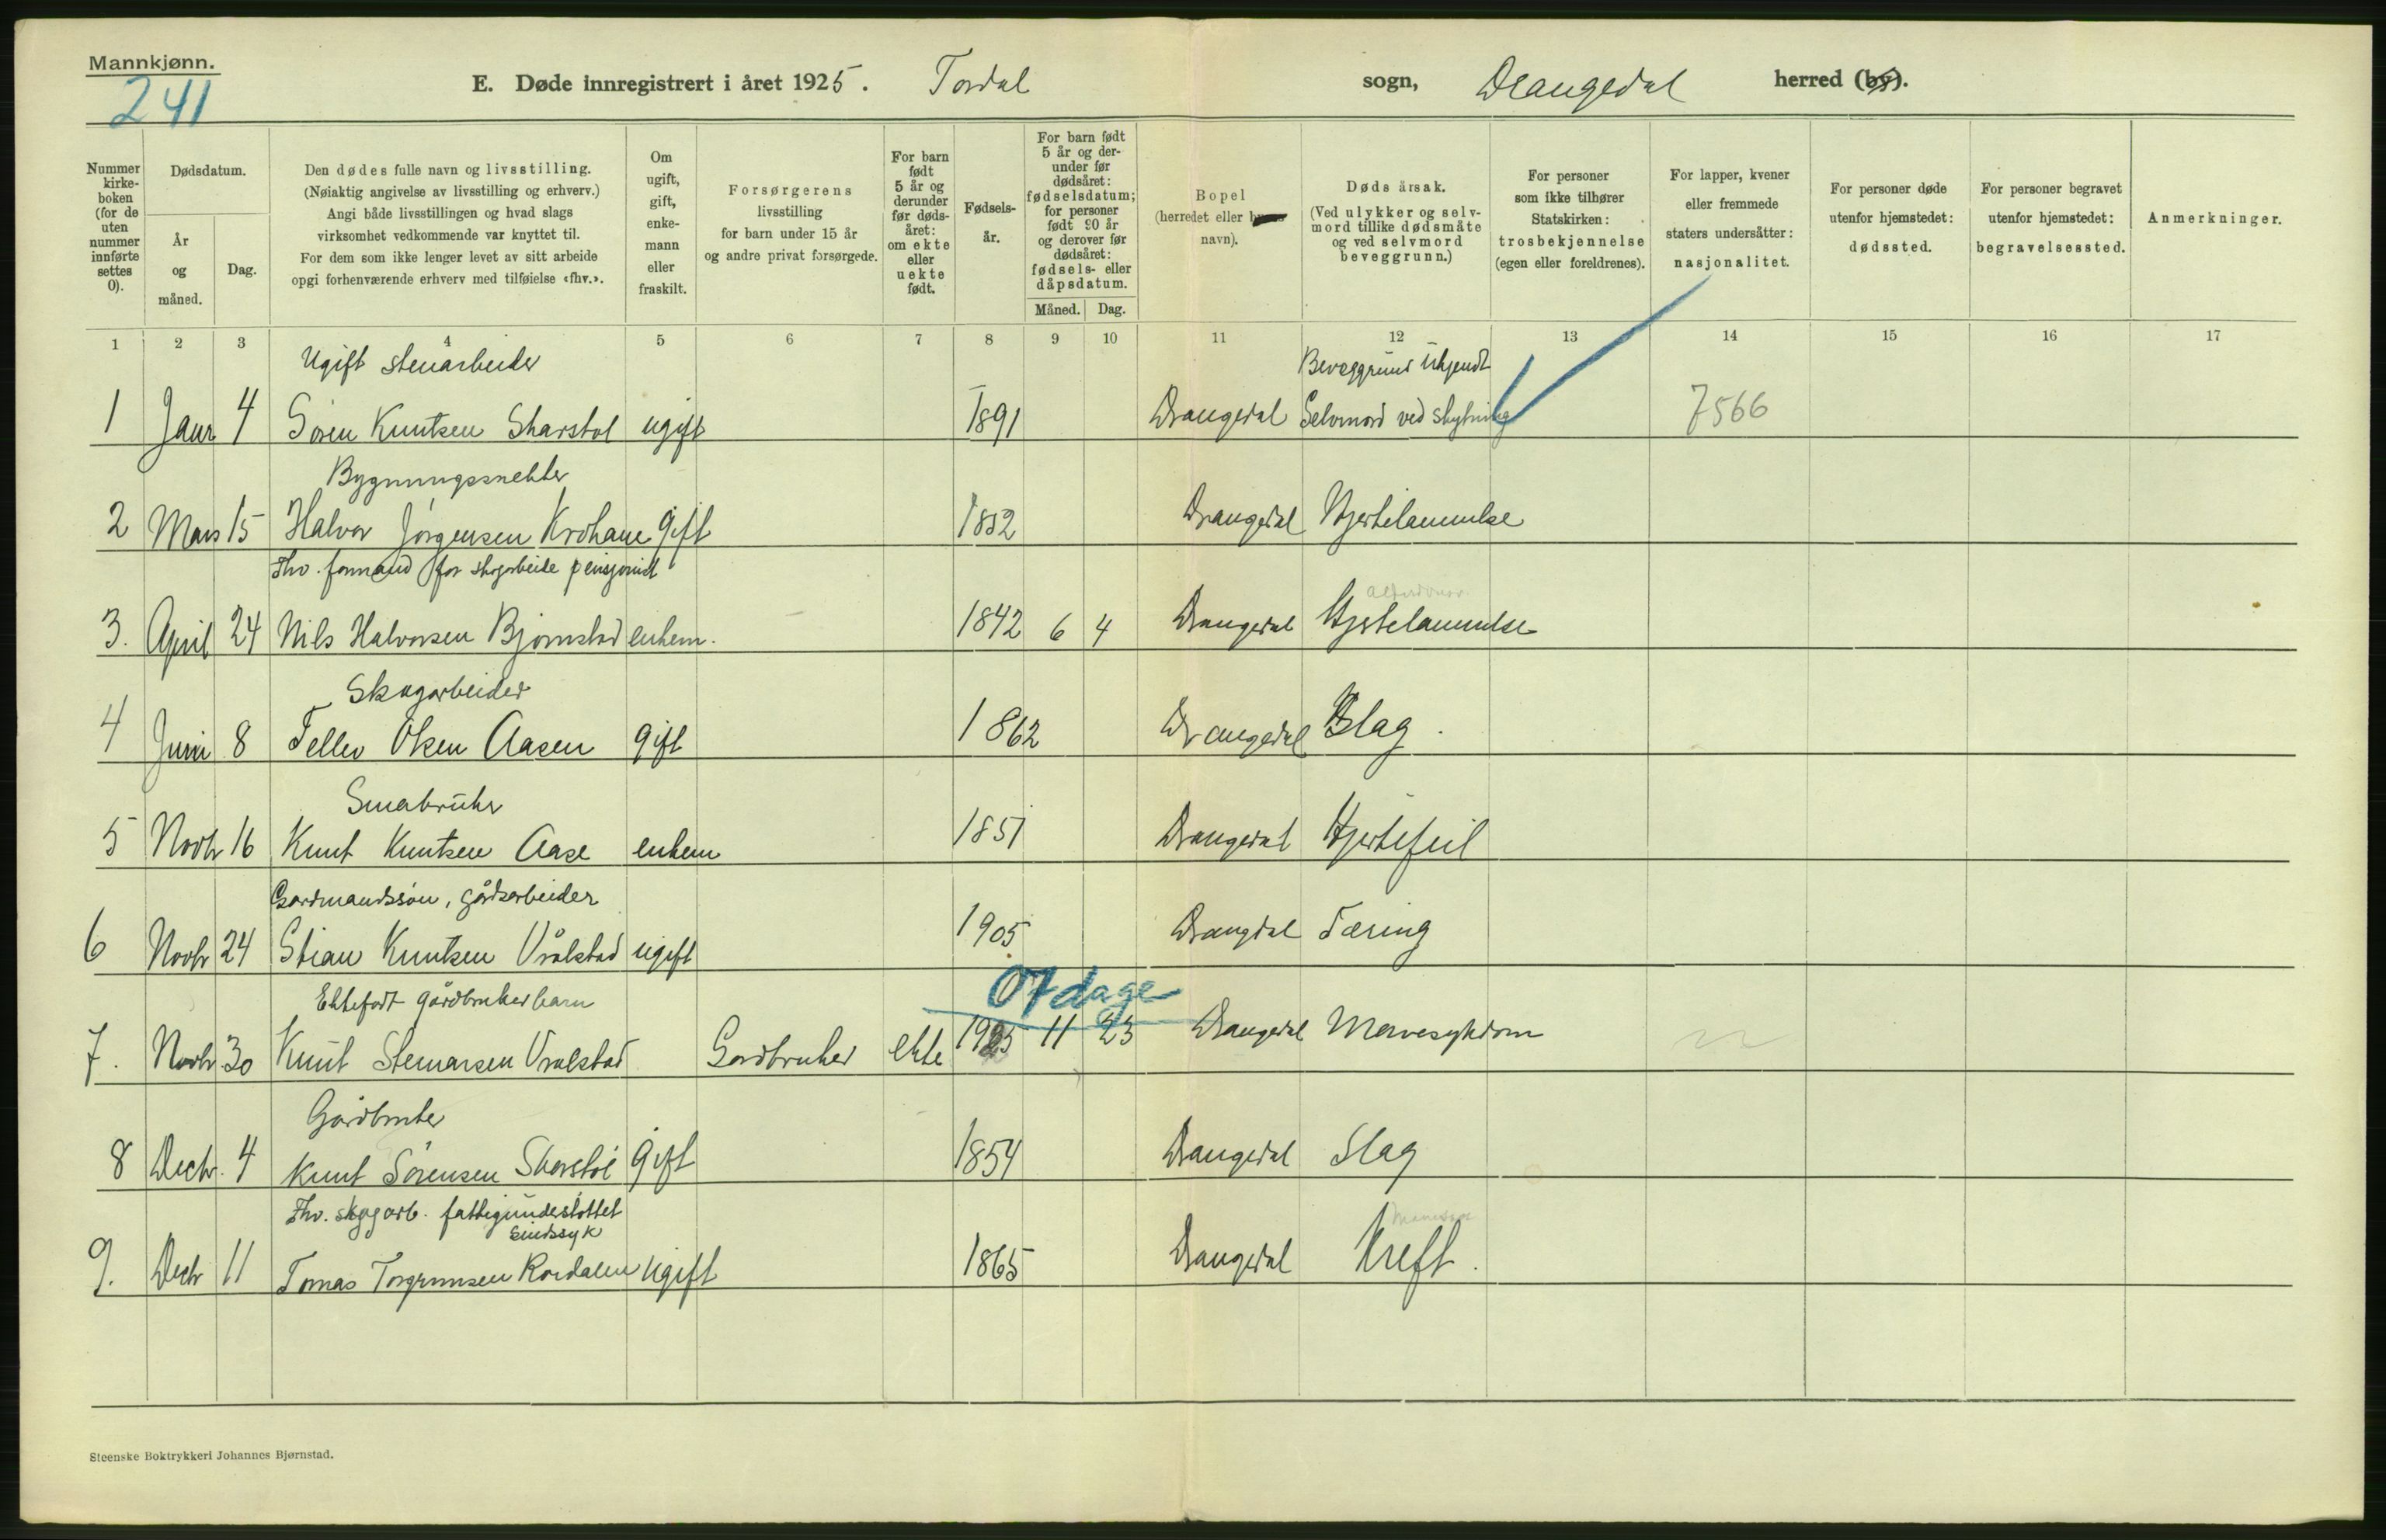 Mannkjønn.
241
E. Døde innregistrert i året 1925. Tordal sogn, Drangedal herred (by).
Nummer kirke-boken (for de uten nummer innførte settes 0).
Dødsdatum.
År og måned.
Dag.
Den dødes fulle navn og livsstilling.
(Nøiaktig angivelse av livsstilling og erhverv.)
Angi både livsstillingen og hvad slags
virksomhet vedkommende var knyttet til.
For dem som ikke lenger levet av sitt arbeide
opgi forhenværende erhverv med tilføielse «fhv.».
Om ugift, gift, enke-mann eller fraskilt.
Forsørgerens
livsstilling
for barn under 15 år
og andre privat forsørgede.
For barn født 5 år og derunder før døds-året: om ekte eller uekte født.
Fødsels-år.
For barn født 5 år og der-under før dødsåret: fødselsdatum; for personer født 90 år og derover før dødsåret: fødsels- eller dåpsdatum.
Måned.
Dag.
Bopel
(herredet eller
navn).
Døds årsak.
(Ved ulykker og selv-mord tillike dødsmåte og ved selvmord beveggrunn.)
For personer
som ikke tilhører
Statskirken:
trosbekjennelse
(egen eller foreldrenes).
For lapper, kvener
eller fremmede
staters undersåtter:
nasjonalitet.
For personer døde
utenfor hjemstedet:
dødssted.
For personer begravet
utenfor hjemstedet:
begravelsessted.
Anmerkninger.
1 2 3 4 5 6 7 8 9 10 11 12 13 14 15 16 17
Ugift stenarbeider Beveggrund ukjendt
1 Janr 4 Søren Kuntsen Skarstøl ugift 1891 Drangedal Selvmord ved skytning 7566
Bygnungssnekker
2 Mars 15 Halvor Jørgensen Krohane gift 1852 Drangedal Hjertelammelse
Fhv. formand for skogarbeide pensjonist
3. April 24 Nils Halvorsen Bjørnstad enkem. 1842 6 4 Drangedal Hjertelammelse
Skogarbeider
4 Juni 8 Tellev Olsen Aasen gift 1862 Drangedal Slag.
Smabruker
5 Novbr 16 Knut Kuntsen Aase enkem 1851 Drangedal Hjertefeil
Gardmandssøn, gårdsarbeider
6 Novbr 24 Stian Kuntsen Vrålstad ugift 1905 Drangdal Tæring
07 dage
Ektefødt gårdbruker barn
7. Novbr 30 Knut Steinarsen Vralstad Gardbruker ekte 1925 11 23 Drangedal Mavesykdom
Gårdbruker
8 Decbr. 4 Knut Sørensen Skarstøl gift 1854 Drangedal Slag
Fhv. skogarb. fattigunderstøttet
Sindssyk
9. Decbr 11 Tomas Torgrimsen Rørdalen ugift 1865 Drangedal Kreft.
Steenske Boktrykkeri Johannes Bjørnstad.